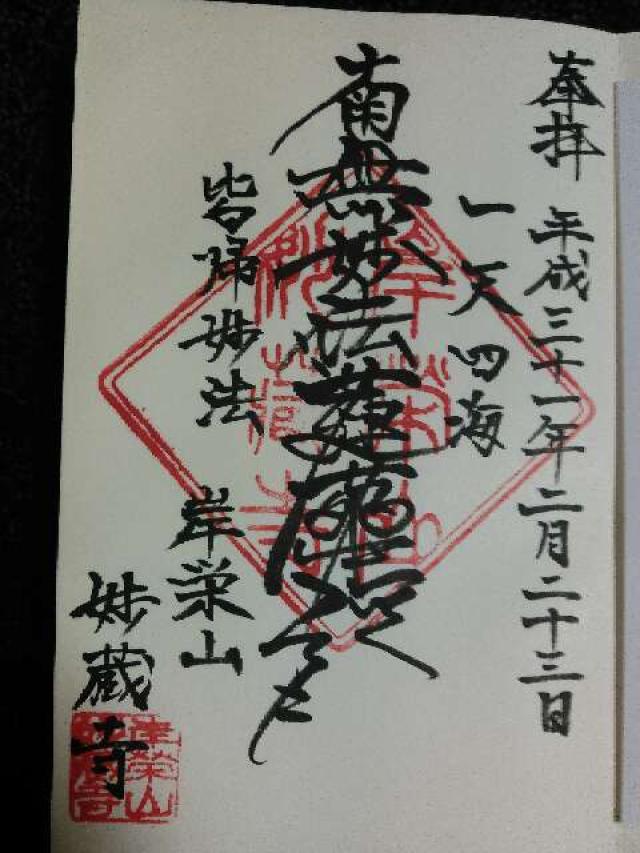 奉拝 平成三十一年二月二十三日
一天四海
南無妙法蓮華経
皆帰妙法
岸栄山
妙蔵寺